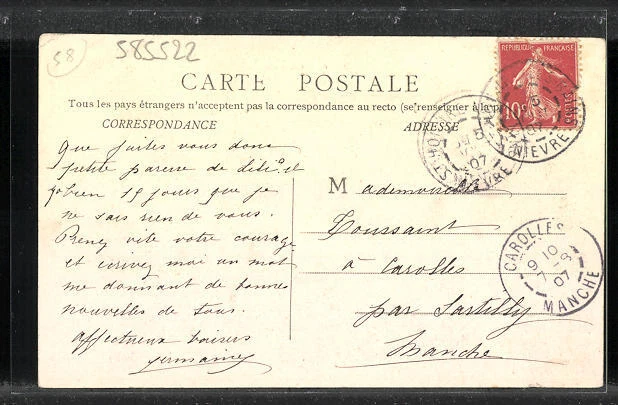 58
585522
CARTE POSTALE
Tous les pays étrangers n'acceptent pas la correspondance au recto (se renseigner à la p
CORRESPONDANCE
ADRESSE
REPUBLIQUE FRANÇAISE
10c
POSTES
NIEVRE
ST-HONORE
07
NIEVRE
Que faites vous donc
petite paresse de Lili, et
bien 15 jours que je
ne sais rien de vous.
Prenez vite votre courage
et écrivez moi un mot
me donnant de bonnes
nouvelles de tous.
affectueux baisers
Germaine
Mademoiselle
Toussaint
à Carolles
par Sartilly
Manche
CAROLLES
9 10
7 -8
07
MANCHE